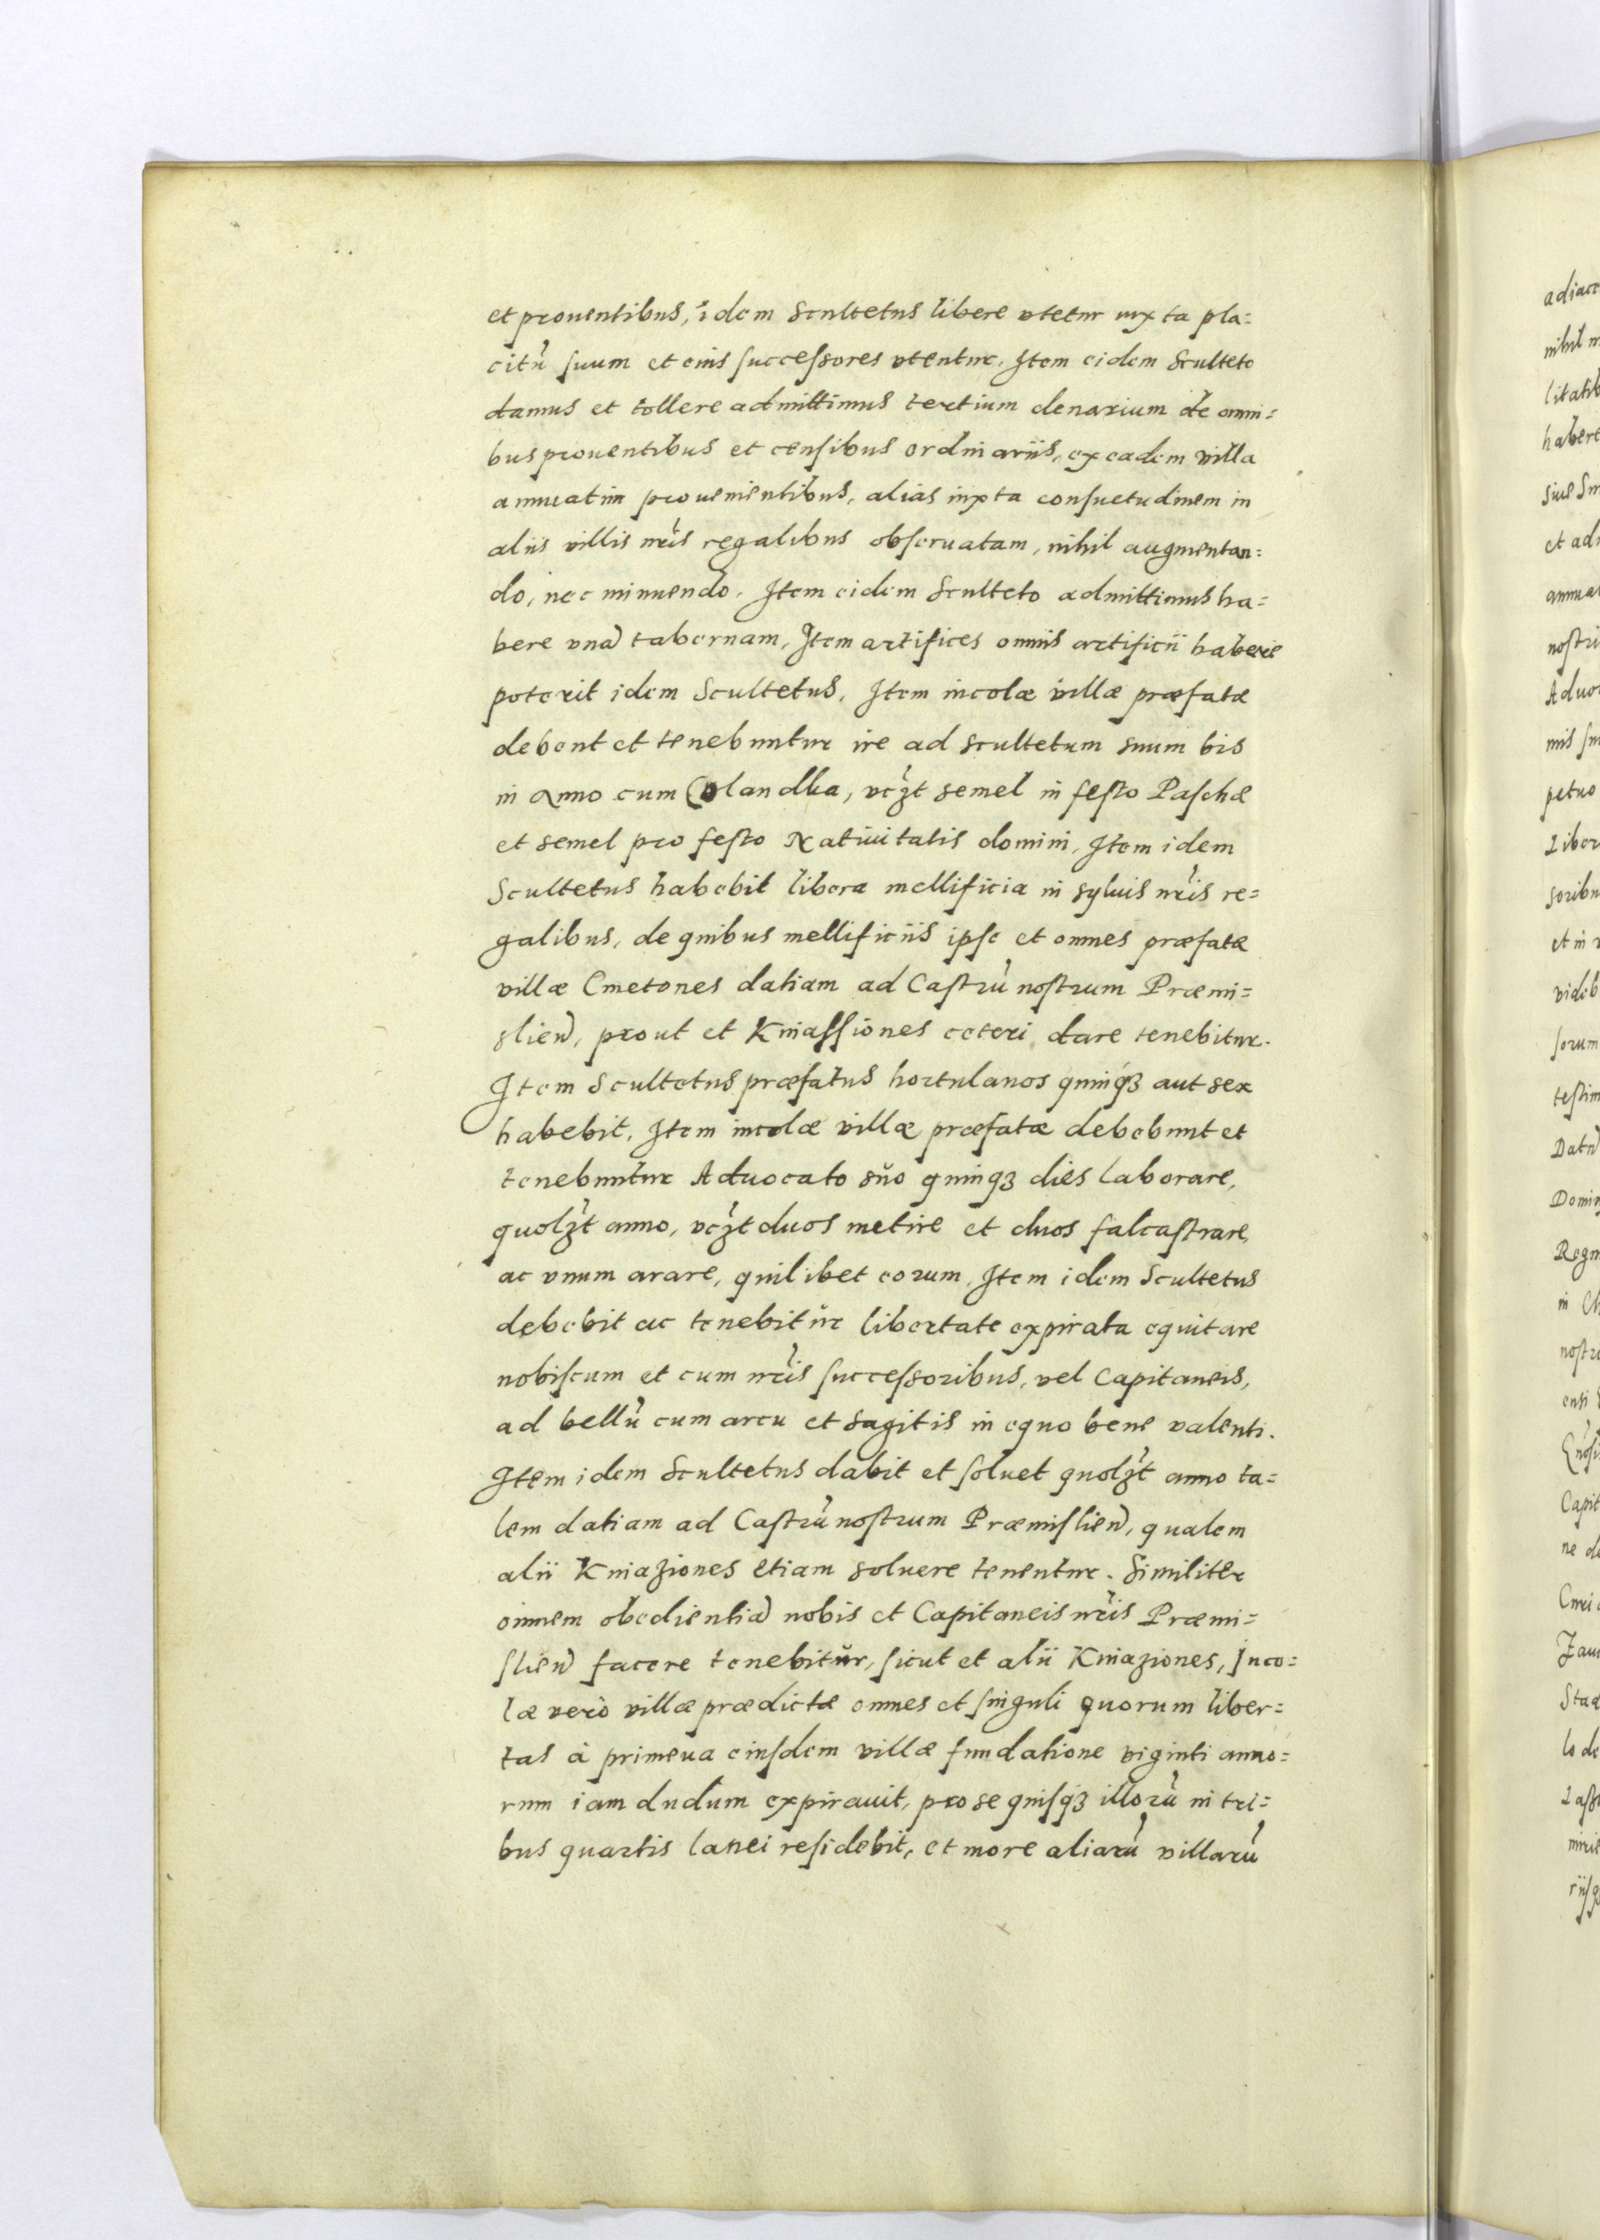 et prouentibus, idem Scultetus libere vtetur iuxta pla=
citũ suum et eius successores vtentur. Item eidem Sculteto
damus et tollere admittimus tertium denarium de omni=
bus prouentibus et censibus ordinariis, ex eadem villa
annuatim prouenientibus, alias iuxta consuetudinem in
aliis villis nr̃is regalibus obseruatam, nihil augmentan=
do, nec minuendo. Item eidem Sculteto admittimus ha=
bere vnã tabernam, Item artifices omnis artificii habere
poterit idem Scultetus. Item incolæ villæ præfatæ
debent et tenebuntur ire ad scultetum suum bis
in anno cum Colandka, vcz̃t semel in festo Paschæ
et semel pro festo Natiuitatis domini, Item idem
Scultetus habebit libera mellificia in syluis nr̃is re=
galibus, de quibus mellificiis ipse et omnes præfatæ
villæ Cmetones datiam ad Castrũ nostrum Præmi=
slien̄, prout et Kniassiones ceteri dare tenebitur.
Item Scultetus præfatus hortulanos quinqꝫ aut sex
habebit. Item incolæ villæ præfatæ debebunt et
tenebuntur Aduocato sũo quinqꝫ dies laborare,
quolz̃t anno, vcz̃t duos metire et duos falcastrare,
ac vnum arare, quilibet eorum. Item idem Scultetus
debebit ac tenebitur libertate expirata equitare
nobiscum et cum nr̃is successoribus, vel Capitaneis,
ad bellũ cum arcu et sagitis in equo bene valenti.
Item idem Scultetus dabit et soluet quolz̃t anno ta=
lem datiam ad Castrũ nostrum Præmislien̄, qualem
alii Kniaziones etiam soluere tenentur. Similiter
omnem obedientiã nobis et Capitaneis nr̃is Præmi=
slien̄ facere tenebitur, sicut et alii Kniaziones, Inco=
læ verò villæ prædictæ omnes et singuli quorum liber=
tas à primeua eiusdem villæ fundatione viginti anno=
rum iam dudum expirauit, pro se quisqꝫ illorũ in tri=
bus quartis lanei residebit, et more aliarũ villarũ